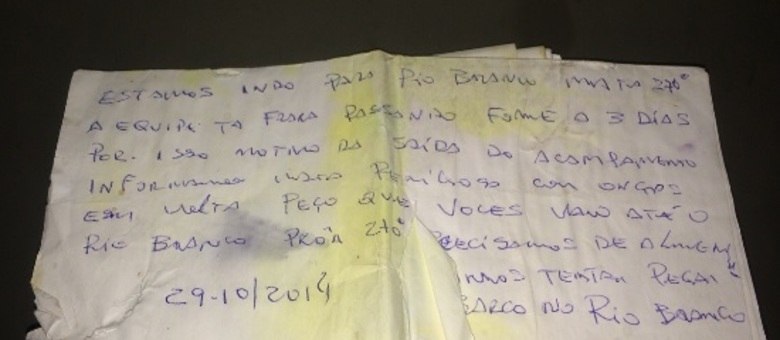 ESTAMOS INDO PARA RIO BRANCO MATA 270°
A EQUIPE TA FRACA PASSANDO FOME A 3 DIAS
POR. ISSO MOTIVO DA SAÍDA DO ACAMPAMENTO
INFORMAMOS MATA PERIGOSO COM ONÇAS
MATA PEÇO QUE VOCES VAM ATÉ O
RIO BRANCO PRÔA 270° PRECISAMOS DE ALIMEN
TENTAR PEGAR
29-10/2014 BARCO NO RIO BRANCO